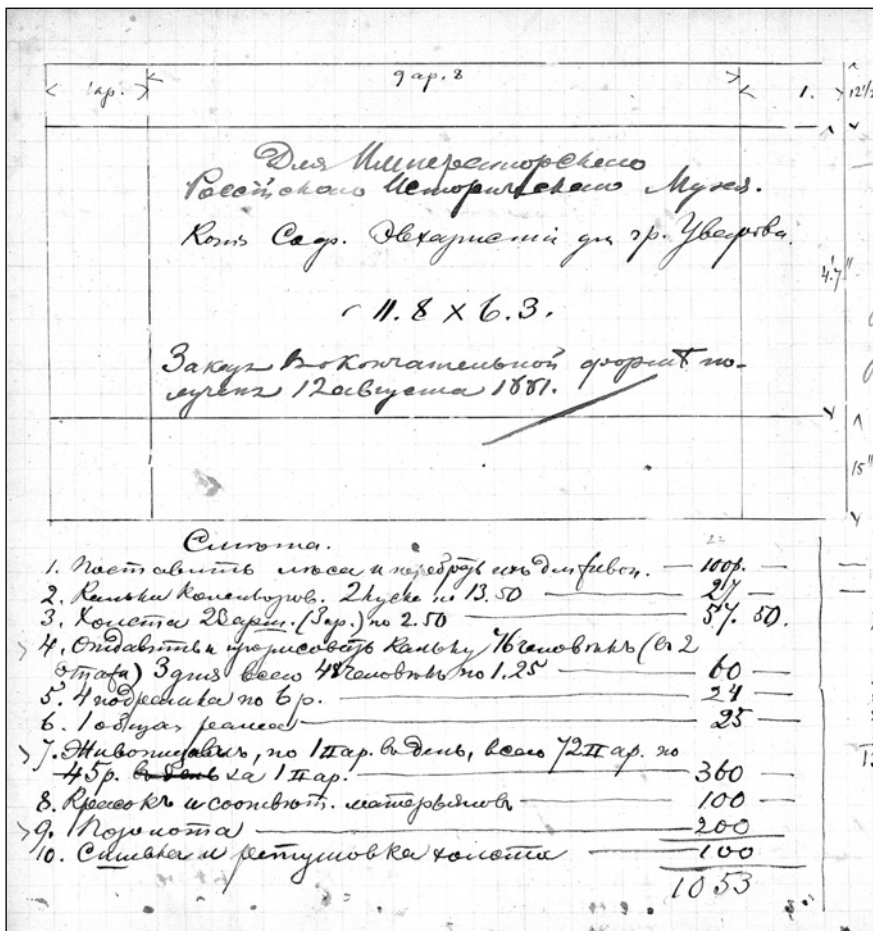 1 ар. 9 ар. 8 1. 12 1/2
Для Императорского
Россійскаго Историческаго Музея.
Копія Евхаристіи для гр. Уварова.
11.8 x 6.3.
4'.7"
Заказ окончательной форме по-
лученъ 12 августа 1881.
15"
Смѣта.
1. Поставить лѣса и — 100р. —
2. Кальки коленкоров. 2 куска по 13.50 — 27 —
3. Холста 23 арш. (3 ар.) по 2.50 — 57. 50.
4. и прорисовать кальку 16 человѣкъ (въ 2
этажа) 3 дня всего 48 человѣкъ по 1.25 — 60 —
5. 4 подрамника по 6 р. — 24 —
6. 1 общая рама — 25 —
7. Живописцамъ, по 1 ар. въ день, всего 72 ар. по
5р. за 1 ар. — 360 —
8. Красокъ и соотвѣт. матерьяловъ — 100 —
9. — 200
10. Сшивка и ретушовка холста — 100
1053